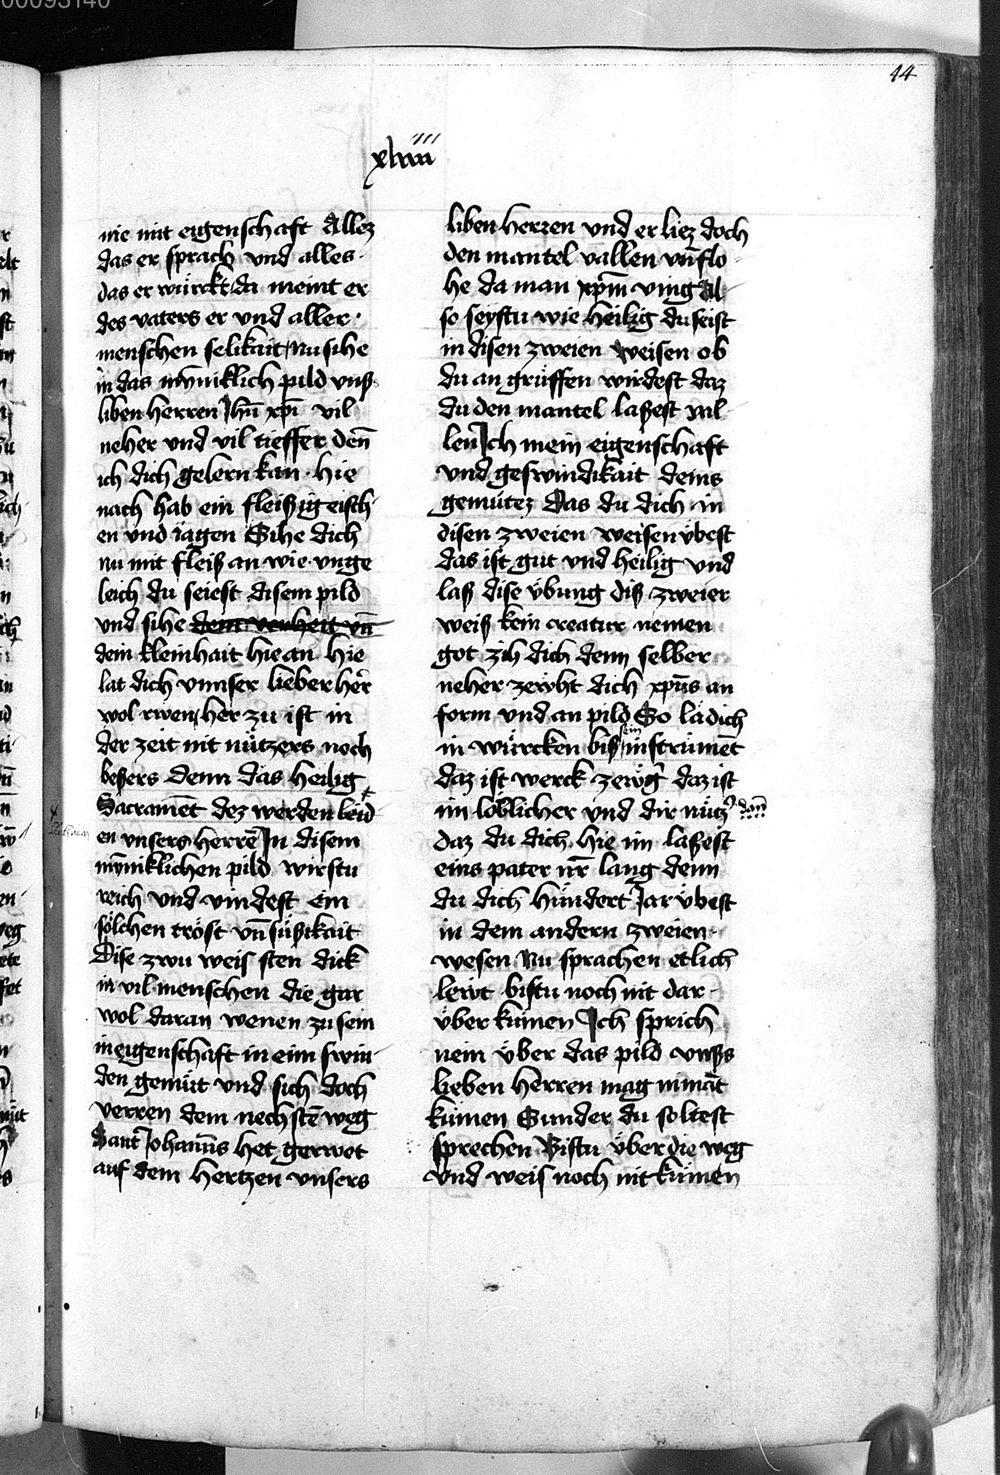 44
xliiii
nie mit eigenschaft Allez
das er sprach vnd alles
das er würckt da meint er
des vaters er vnd aller
menschen selikait nu sihe
in das mỹniklich pild vnß
liben herren Jhū xpi vil
neher vnd vil tieffer den̄
ich dich gelern kan · hie
nach hab ein fleißig eisch
en vnd iagen Sihe dich
nu mit fleiß an wie vnge
leich du seiest disem pild
vnd sihe dem verheit vn̄
dein kleinhait hie an hie
lat dich vnnser lieber her̄
wol rwen her zu ist in
der zeit nit nützers noch
beßers denn das heilig
Sacramēt dez werden leid
en vnsers herrē In disem
mỹniklichen pild wirstu
reich vnd vindest ein
sölchen tröst vn̄ süßikait
Dise zwu weis sten dick
in vil menschen die gar
wol daran wenen zu sein
in eigenschaft in eim swin
den gemüt vnd sich doch
verren dem nechstē weg
Sant Johan̄s het gerwet
auf dem hertzen vnsers
liben herzen vnd er liez doch
den mantel vallen vn̄ flo
he da man xp̄m ving Al
so seystu wie heilig du seist
in disen zweien weisen ob
du an grüffen wirdest daz
du den mantel laßest val
len Ich mein eigenschaft
vnd geswindikait deins
gemütez Das du dich in
disen zweien weisen übest
das ist gut vnd heilig vnd
laß dise übung diß zweier
weiß kein creatur nemen
got zih dich denn selber
neher zewht dich xp̄us an
form vnd an pild So la dich
in würcken biß ein instrumēt
daz ist werck zewg daz ist
im löblicher vnd dir nütz dan̄
daz du dich hie im laßest
eins pater nr̄ lang denn
du dich hundert Jar übest
in dem andern zweien
wesen Nu sprachen etlich
lewt bistu noch nit dar
über kumen Ich sprich
nein über das pild vnßs
lieben herren mag nimāt
kumen Sunder du soltest
sprechen Bistu über die weg
vnd weis noch nit kumen